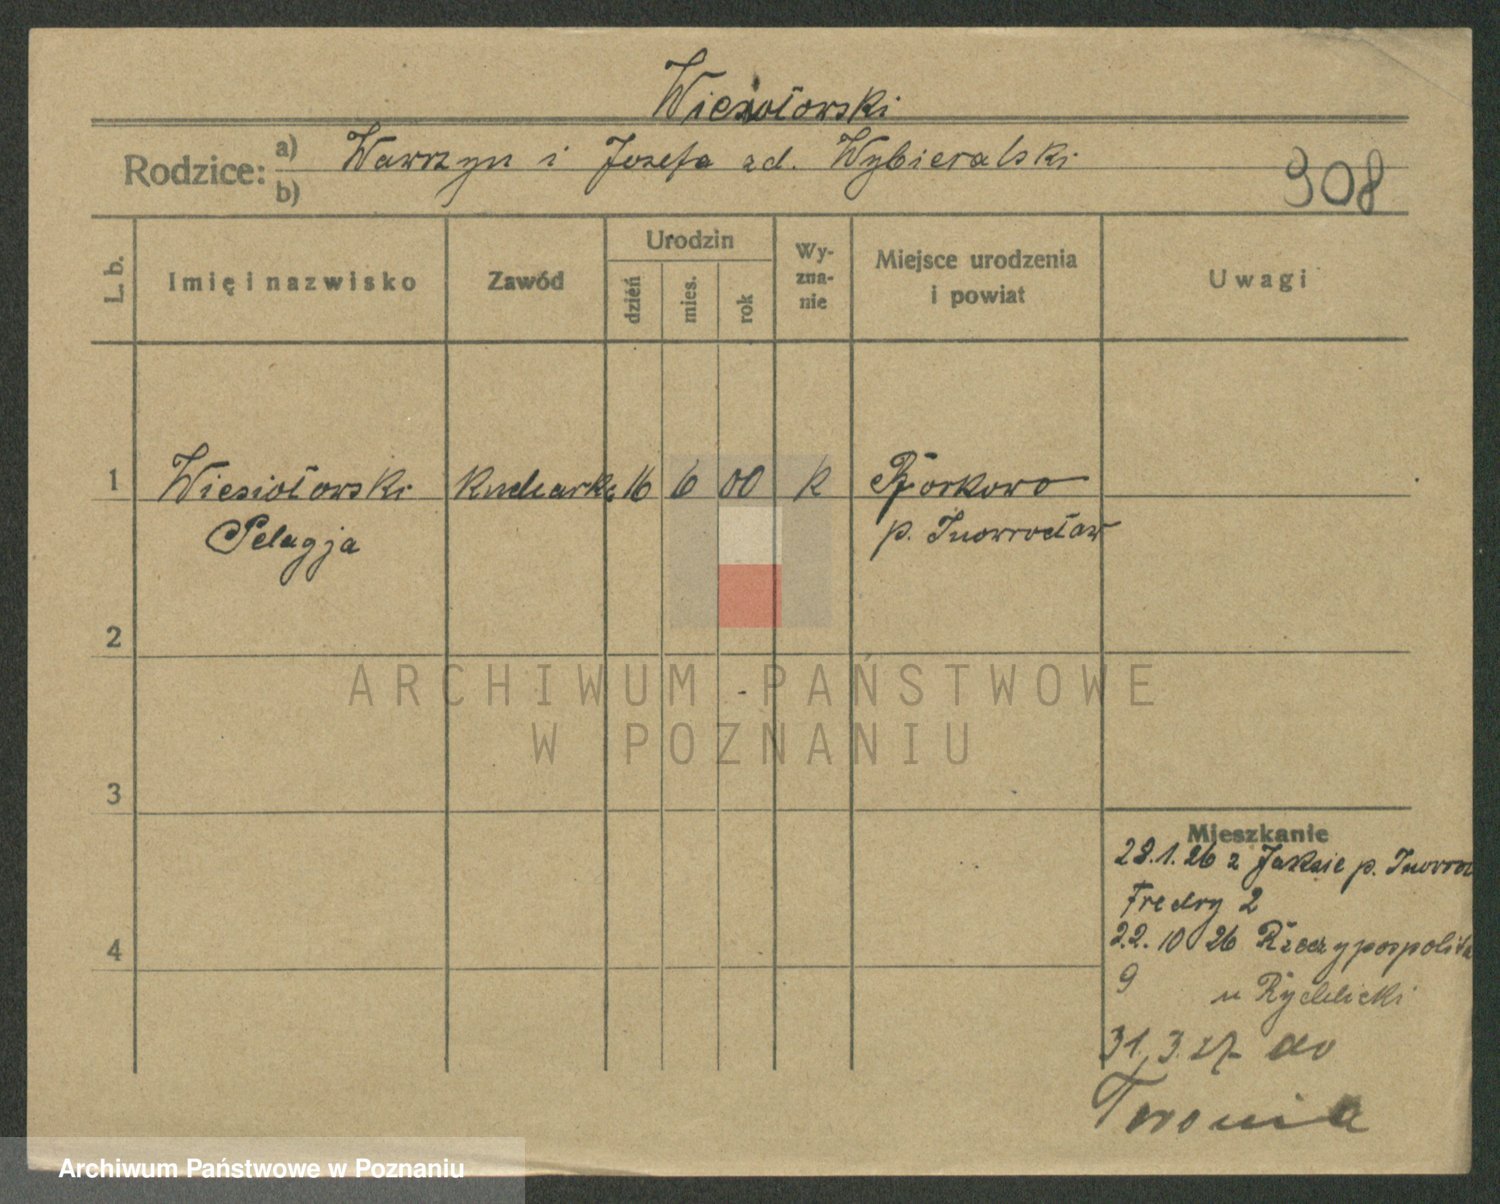 Wiesiołowski
Rodzice: a) Wawrzyn i Józefa zd. Wybieralski
b)
908
L. b. Imię i nazwisko Zawód Urodzin dzień mies. rok Wyznanie Miejsce urodzenia i powiat Uwagi
1 Wiesiołowski Kucharka 16 6 00 k
Pelagja p. Inowrocław
2
ARCHIWUM PAŃSTWOWE
W POZNANIU
3
Mieszkanie
28.1.26 z Jaksic p. Inowroc
Fredry 2
4 22.10 26 Rzeczypospolita
9 u Rychlicki
31.3.27 do
Torunia
Archiwum Państwowe w Poznaniu